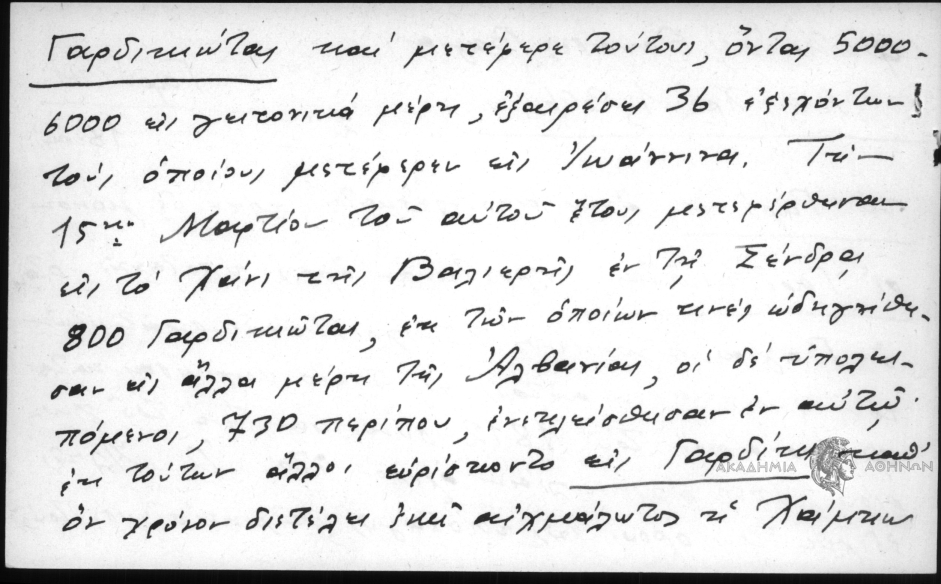 Γαρδικιώτας καί μετέφερε τούτους, ὄντας 5000-
6000 εἰς γειτονικά μέρη, ἐξαιρέσει 36 ἐξεχόντων
τούς ὁποίους μετέφερεν εἰς Ἰωάννινα. Τήν
15ην Μαρτίου τοῦ αὐτοῦ ἔτους μετεφέρθησαν
εἰς τό Χάνι τῆς Βαλιερῆς ἐν τῇ Σένδρᾳ
800 Γαρδικιῶται, ἐκ τῶν ὁποίων τινές ὡδηγήθη-
σαν εἰς ἄλλα μέρη τῆς Ἀλβανίας, οἱ δέ ὑπολει-
πόμενοι, 730 περίπου, ἐνεκλείσθησαν ἐν αὐτῷ.
ἐκ τούτων ἄλλοι εὑρίσκοντο εἰς Γαρδίκι καθ'
ὅν χρόνον διετέλει ἐκεῖ αἰχμάλωτος ἡ Χάμκω
ΑΚΑΔΗΜΙΑ ΑΘΗΝΩΝ